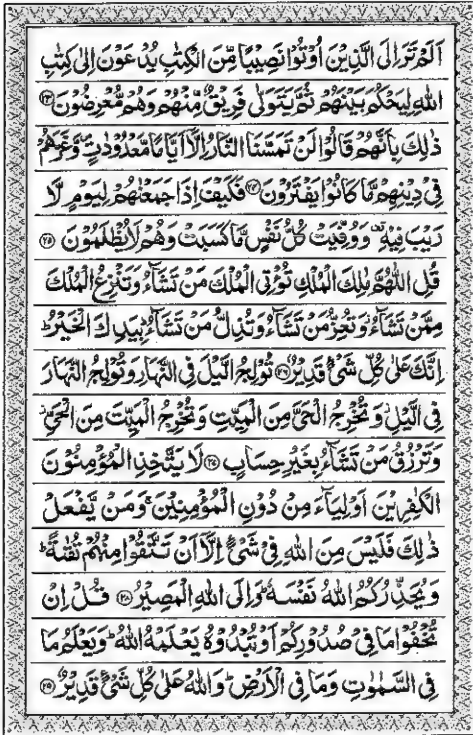 اَلَمْ تَرَ اِلَى الَّذِيْنَ اُوْتُوْا نَصِيْبًا مِّنَ الْكِتٰبِ يُدْعَوْنَ اِلٰى كِتٰبِ
اللّٰهِ لِيَحْكُمَ بَيْنَهُمْ ثُمَّ يَتَوَلّٰى فَرِيْقٌ مِّنْهُمْ وَهُمْ مُّعْرِضُوْنَ ﴿۲۳﴾
ذٰلِكَ بِاَنَّهُمْ قَالُوْا لَنْ تَمَسَّنَا النَّارُ اِلَّاۤ اَيَّامًا مَّعْدُوْدٰتٍ ۪ وَّغَرَّهُمْ
فِيْ دِيْنِهِمْ مَّا كَانُوْا يَفْتَرُوْنَ ﴿۲۴﴾ فَكَيْفَ اِذَا جَمَعْنٰهُمْ لِيَوْمٍ لَّا
رَيْبَ فِيْهِ ۫ وَوُفِّيَتْ كُلُّ نَفْسٍ مَّا كَسَبَتْ وَهُمْ لَا يُظْلَمُوْنَ ﴿۲۵﴾
قُلِ اللّٰهُمَّ مٰلِكَ الْمُلْكِ تُؤْتِي الْمُلْكَ مَنْ تَشَآءُ وَتَنْزِعُ الْمُلْكَ
مِمَّنْ تَشَآءُ ۫ وَتُعِزُّ مَنْ تَشَآءُ وَتُذِلُّ مَنْ تَشَآءُ ؕ بِيَدِكَ الْخَيْرُ ؕ
اِنَّكَ عَلٰى كُلِّ شَيْءٍ قَدِيْرٌ ﴿۲۶﴾ تُوْلِجُ الَّيْلَ فِي النَّهَارِ وَتُوْلِجُ النَّهَارَ
فِي الَّيْلِ ۫ وَتُخْرِجُ الْحَيَّ مِنَ الْمَيِّتِ وَتُخْرِجُ الْمَيِّتَ مِنَ الْحَيِّ ۫
وَتَرْزُقُ مَنْ تَشَآءُ بِغَيْرِ حِسَابٍ ﴿۲۷﴾ لَا يَتَّخِذِ الْمُؤْمِنُوْنَ
الْكٰفِرِيْنَ اَوْلِيَآءَ مِنْ دُوْنِ الْمُؤْمِنِيْنَ ۚ وَمَنْ يَّفْعَلْ
ذٰلِكَ فَلَيْسَ مِنَ اللّٰهِ فِيْ شَيْءٍ اِلَّاۤ اَنْ تَتَّقُوْا مِنْهُمْ تُقٰىةً ؕ
وَيُحَذِّرُكُمُ اللّٰهُ نَفْسَهٗ ؕ وَاِلَى اللّٰهِ الْمَصِيْرُ ﴿۲۸﴾ قُلْ اِنْ
تُخْفُوْا مَا فِيْ صُدُوْرِكُمْ اَوْ تُبْدُوْهُ يَعْلَمْهُ اللّٰهُ ؕ وَيَعْلَمُ مَا
فِي السَّمٰوٰتِ وَمَا فِي الْاَرْضِ ؕ وَاللّٰهُ عَلٰى كُلِّ شَيْءٍ قَدِيْرٌ ﴿۲۹﴾